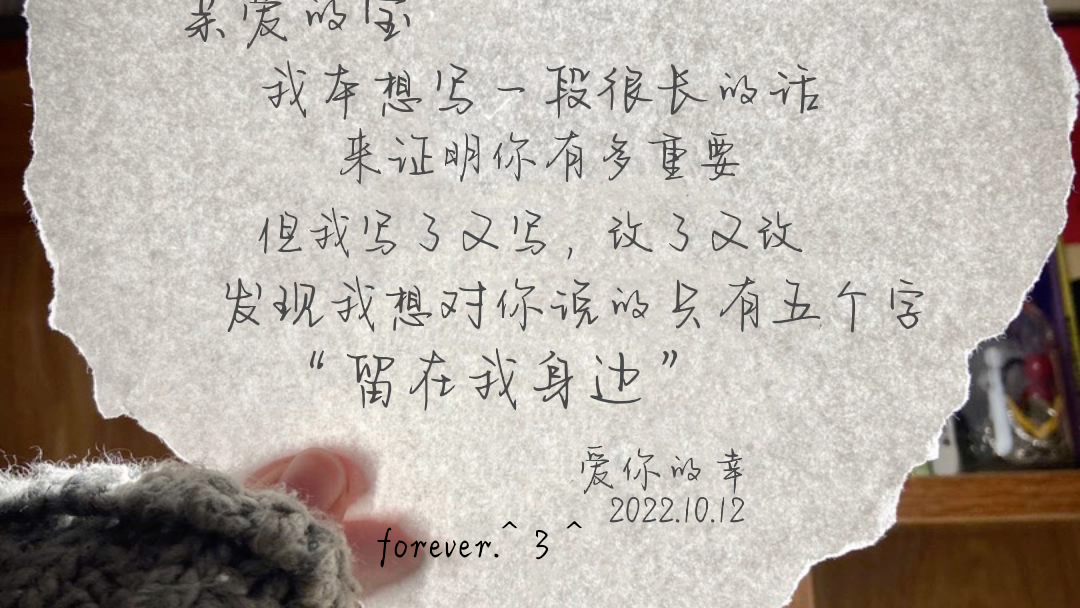 亲爱的宝
我本想写一段很长的话
来证明你有多重要
但我写了又写，改了又改
发现我想对你说的只有五个字
“留在我身边”
爱你的幸
2022.10.12
forever.^3^